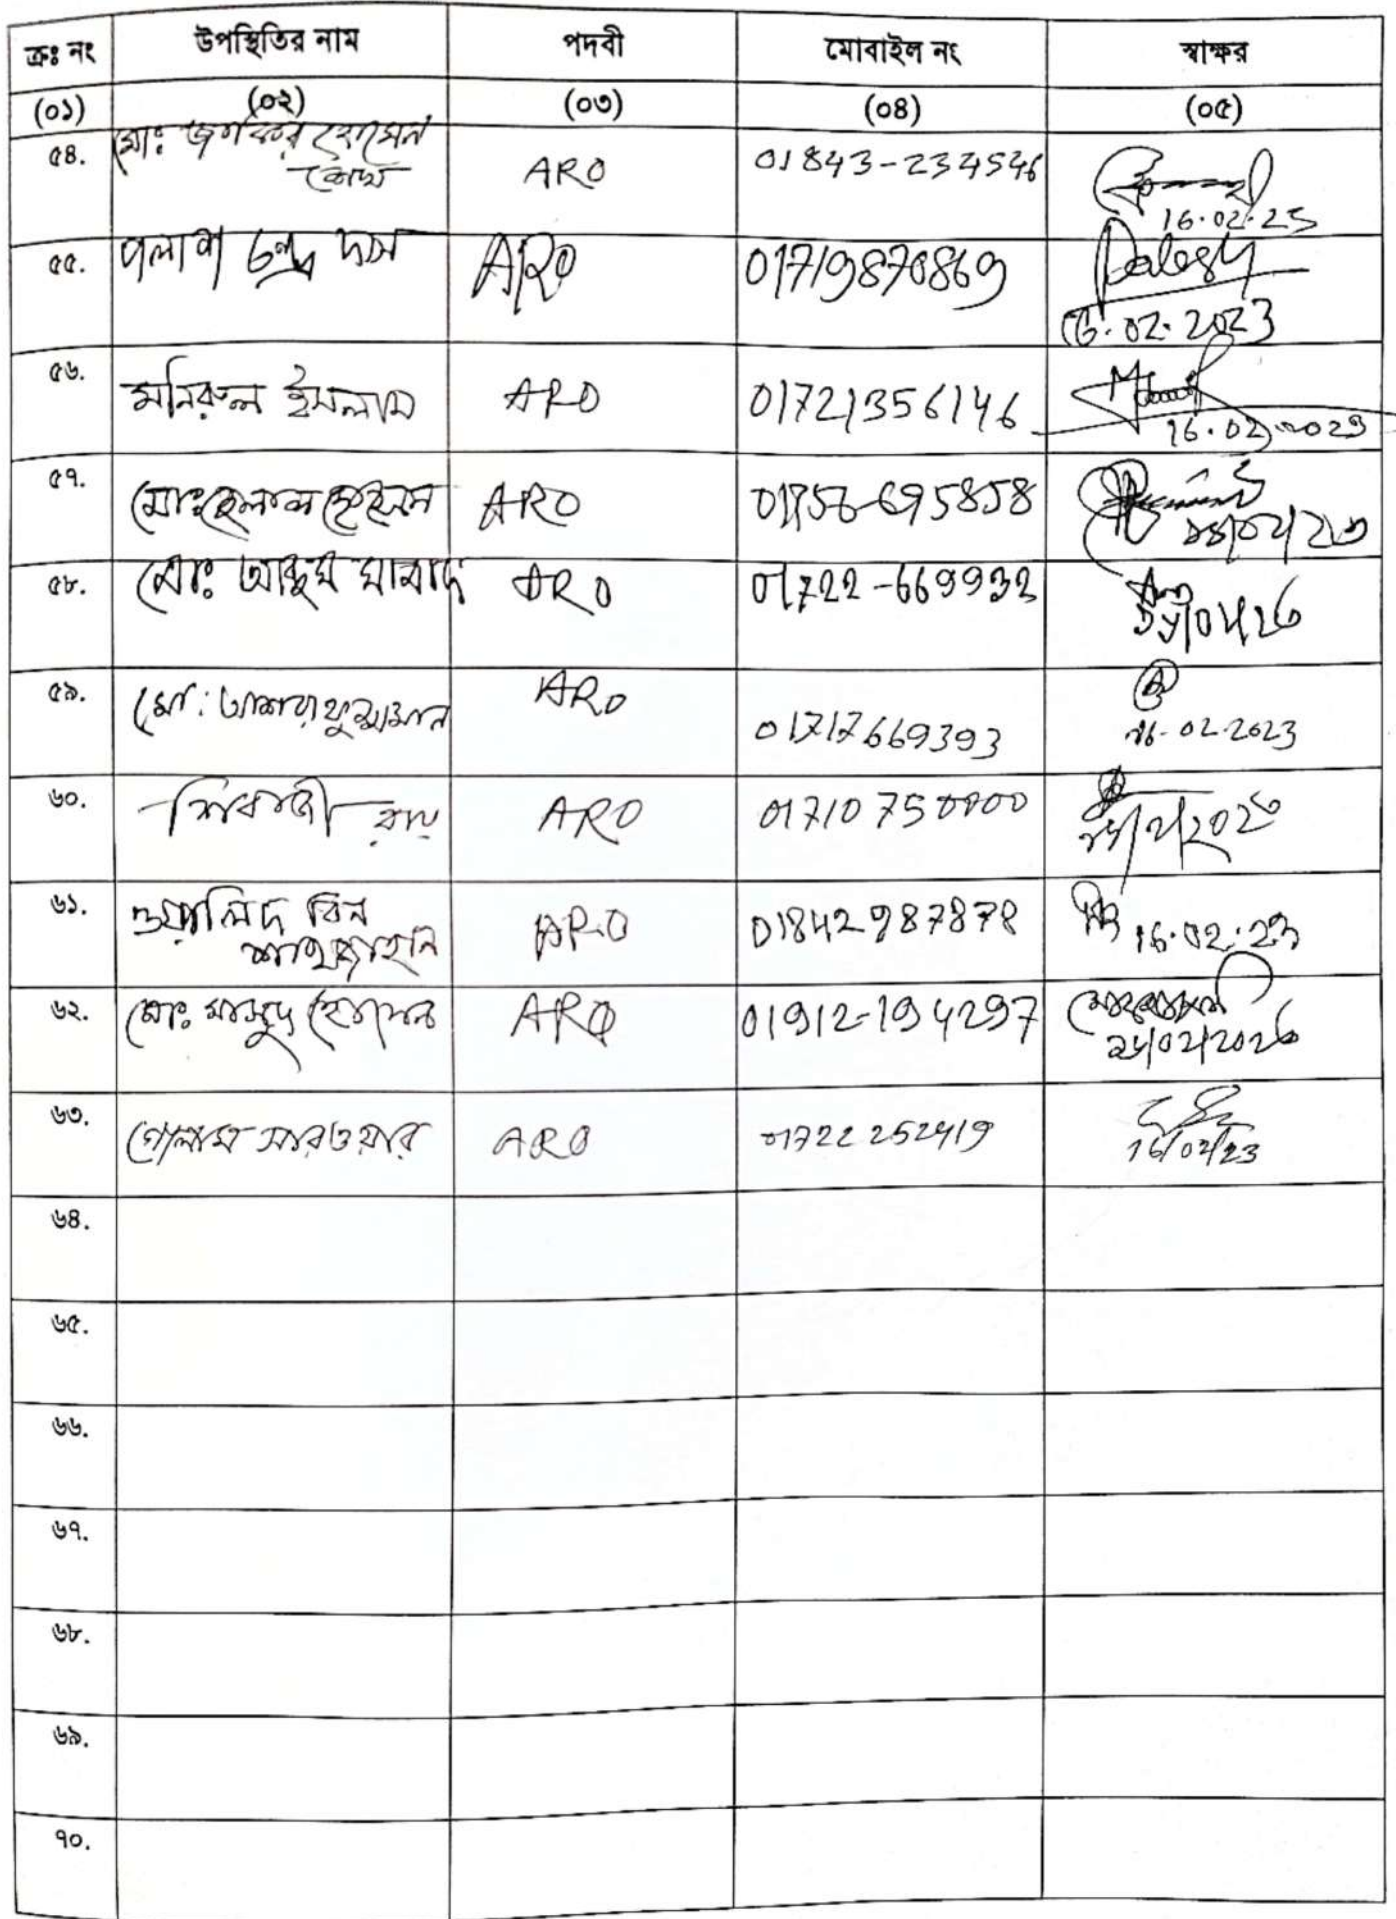 ক্রঃ নং উপস্থিতির নাম পদবী মোবাইল নং স্বাক্ষর
(০১) (০২) (০৩) (০৪) (০৫)
৫৪. মোঃ জাকির হোসেন ARO 01843-234546
16.02.23
৫৫. পলাশ চন্দ্র দাস ARO 01719870869 Palash
16.02.2023
৫৬. মনিরুল ইসলাম ARO 01721356146
16.02.2023
৫৭. মোঃ হেলাল ARO 695858
৫৮. মোঃ আব্দুস সামাদ ARO 01722-669932
৫৯. মো: আশরাফুজ্জামান ARO 01717669393
16-02-2023
৬০. শিবাজী রায় ARO 01710750000
৬১. ওয়ালিদ বিন ARO 01842987878 16.02.23
শাহজাহান
৬২. মোঃ মাসুদ হোসেন ARO 01912-194297
১৬/০২/২০২৩
৬৩. গোলাম সারওয়ার ARO 01722252419
16/02/23
৬৪.
৬৫.
৬৬.
৬৭.
৬৮.
৬৯.
৭০.